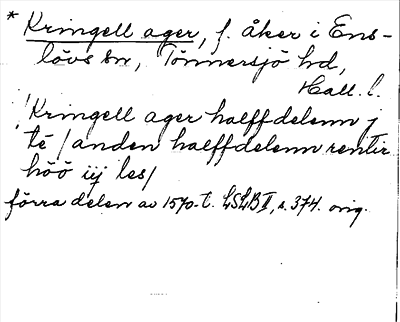 * Kringell ager, f. åker i Ens-
lövs sn, Tönnersjö hd,
Hall. l.
! Kringell ager halffdelenn j
té / anden halffdelenn rentir
höö iij les/
förra delen av 1570-t. LSLB II, s. 374. orig.